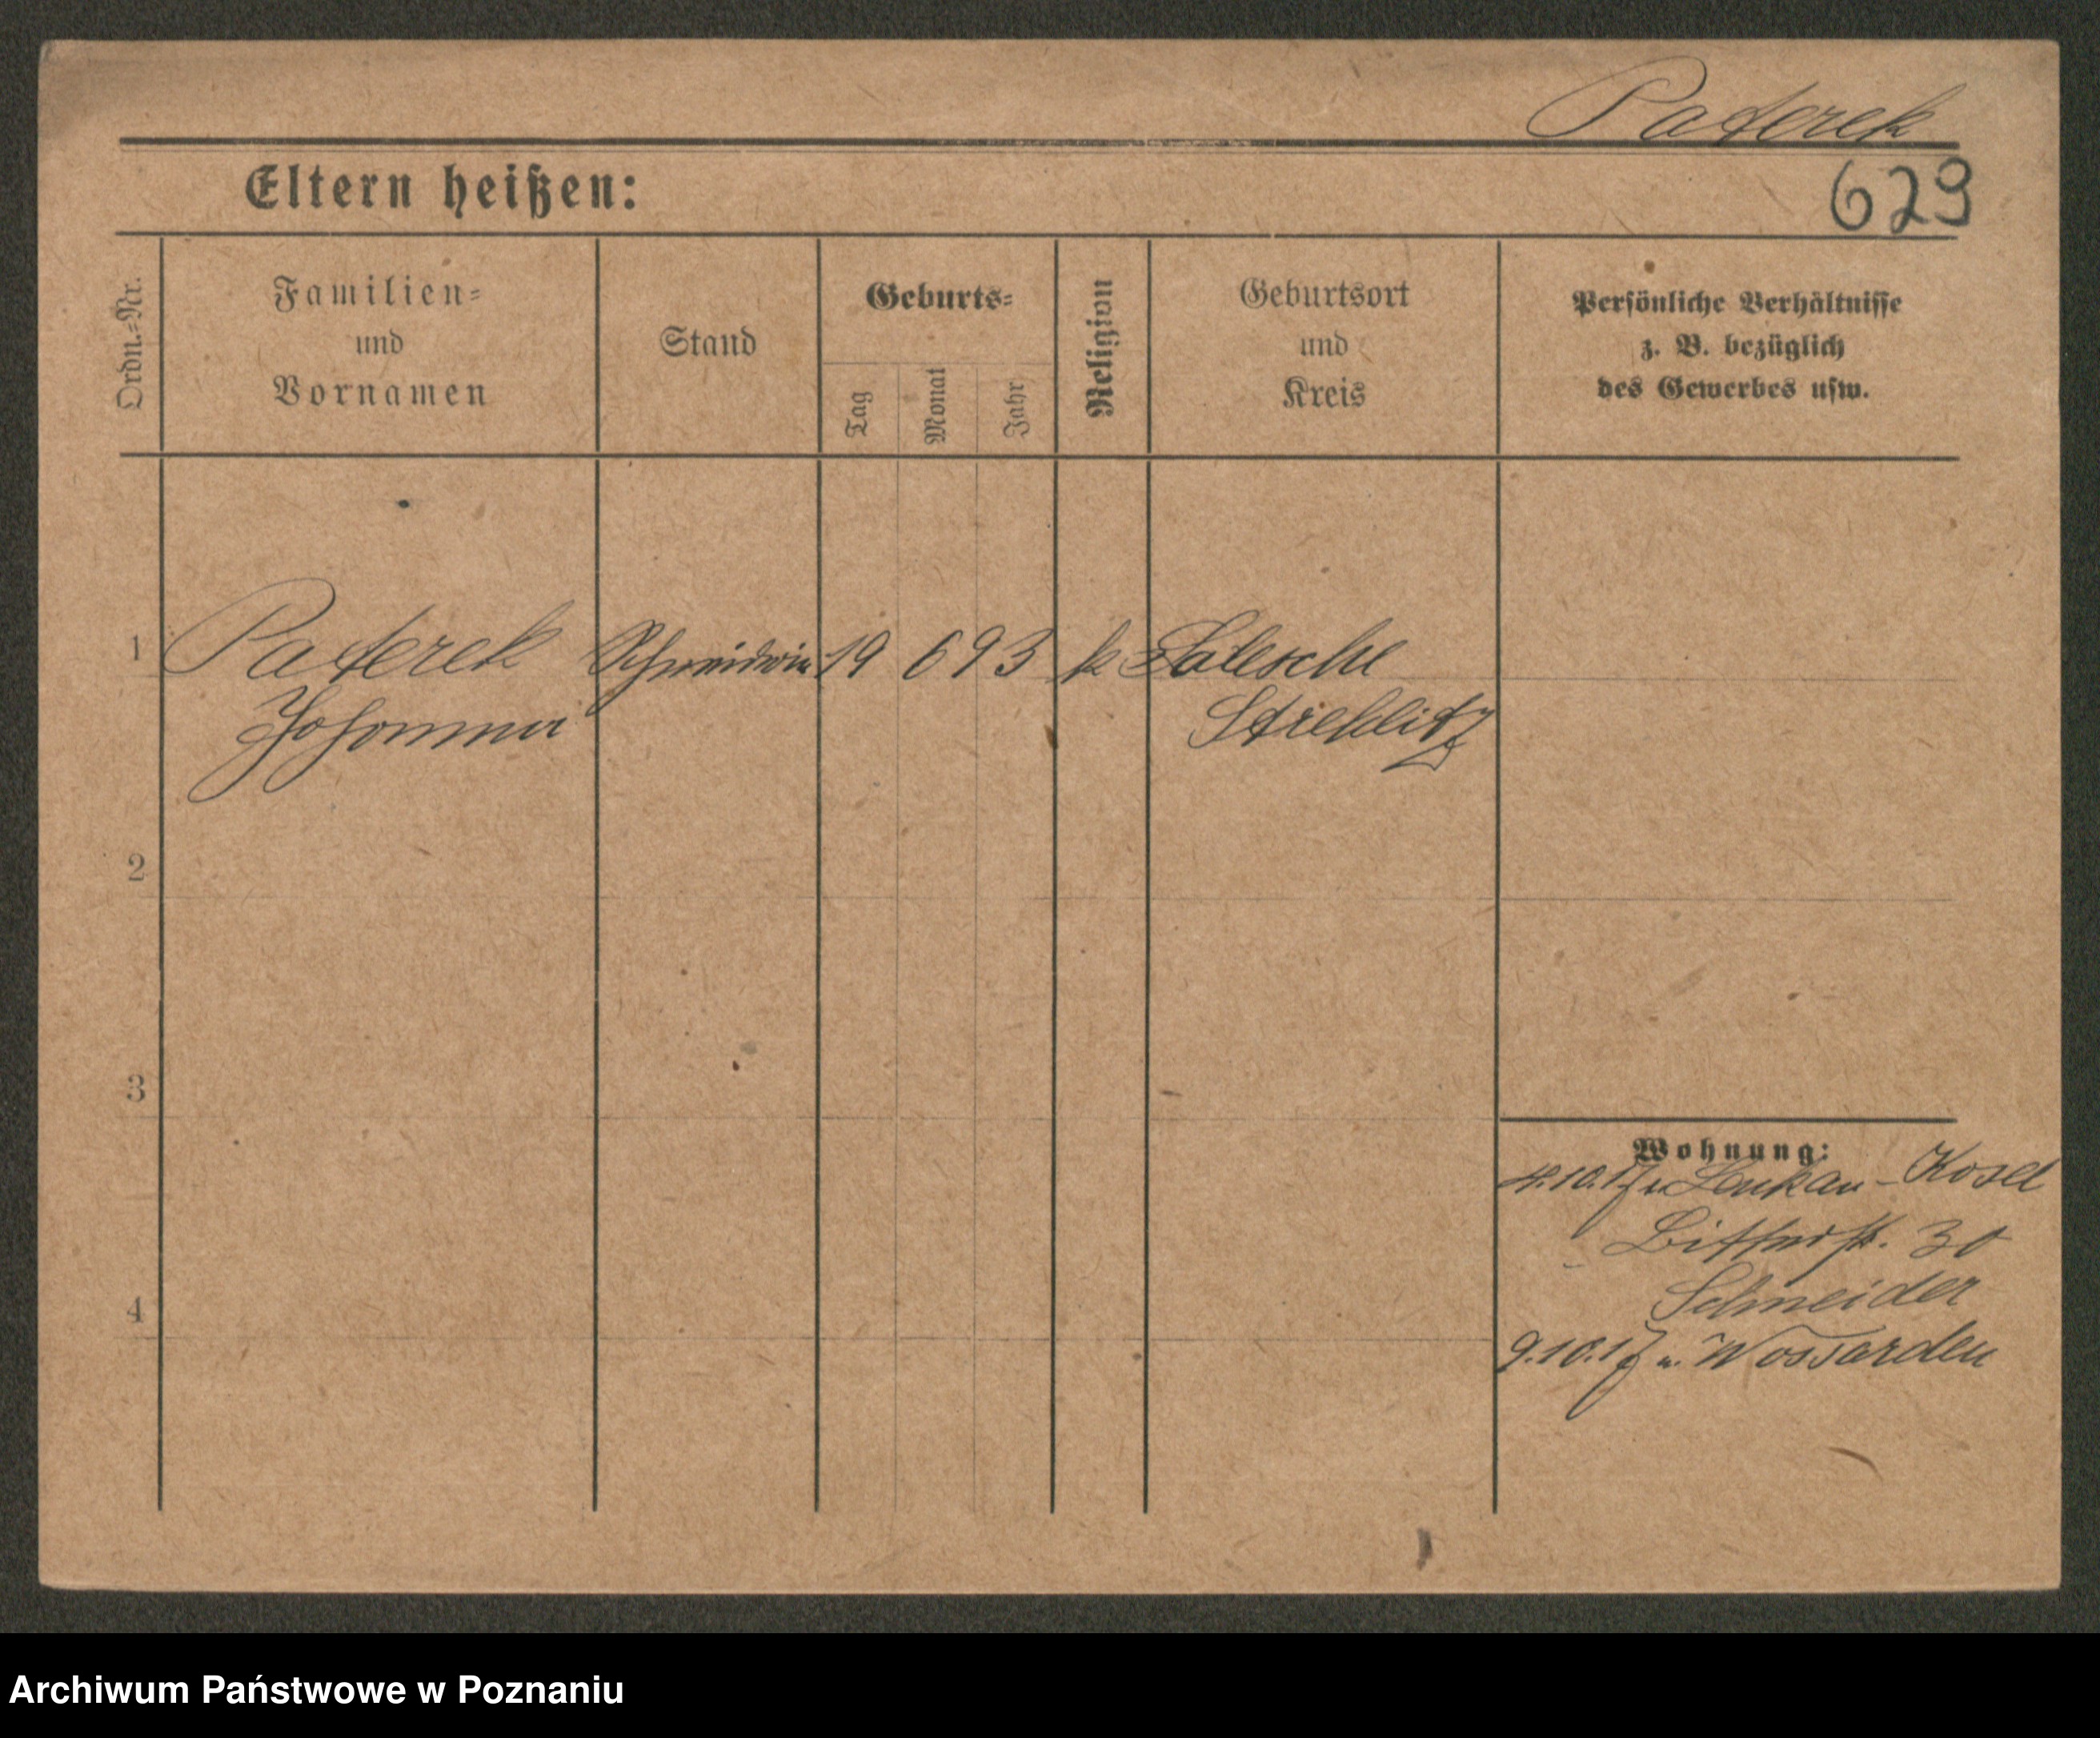 Paterek
Eltern heißen:
629
Ordn.=Nr.
Familien=
und
Vornamen
Stand
Geburts=
Tag
Monat
Jahr
Religion
Geburtsort
und
Kreis
Persönliche Verhältnisse
z. B. bezüglich
des Gewerbes usw.
1
Paterek
Johanna
Schneiderin
19
6
93
k
Salesche
Strehlitz
2
3
4
Wohnung:
4.10.17 v. Lenkau - Kosel
Bitterstr. 30
Schneider
9.10.17 n.
Archiwum Państwowe w Poznaniu